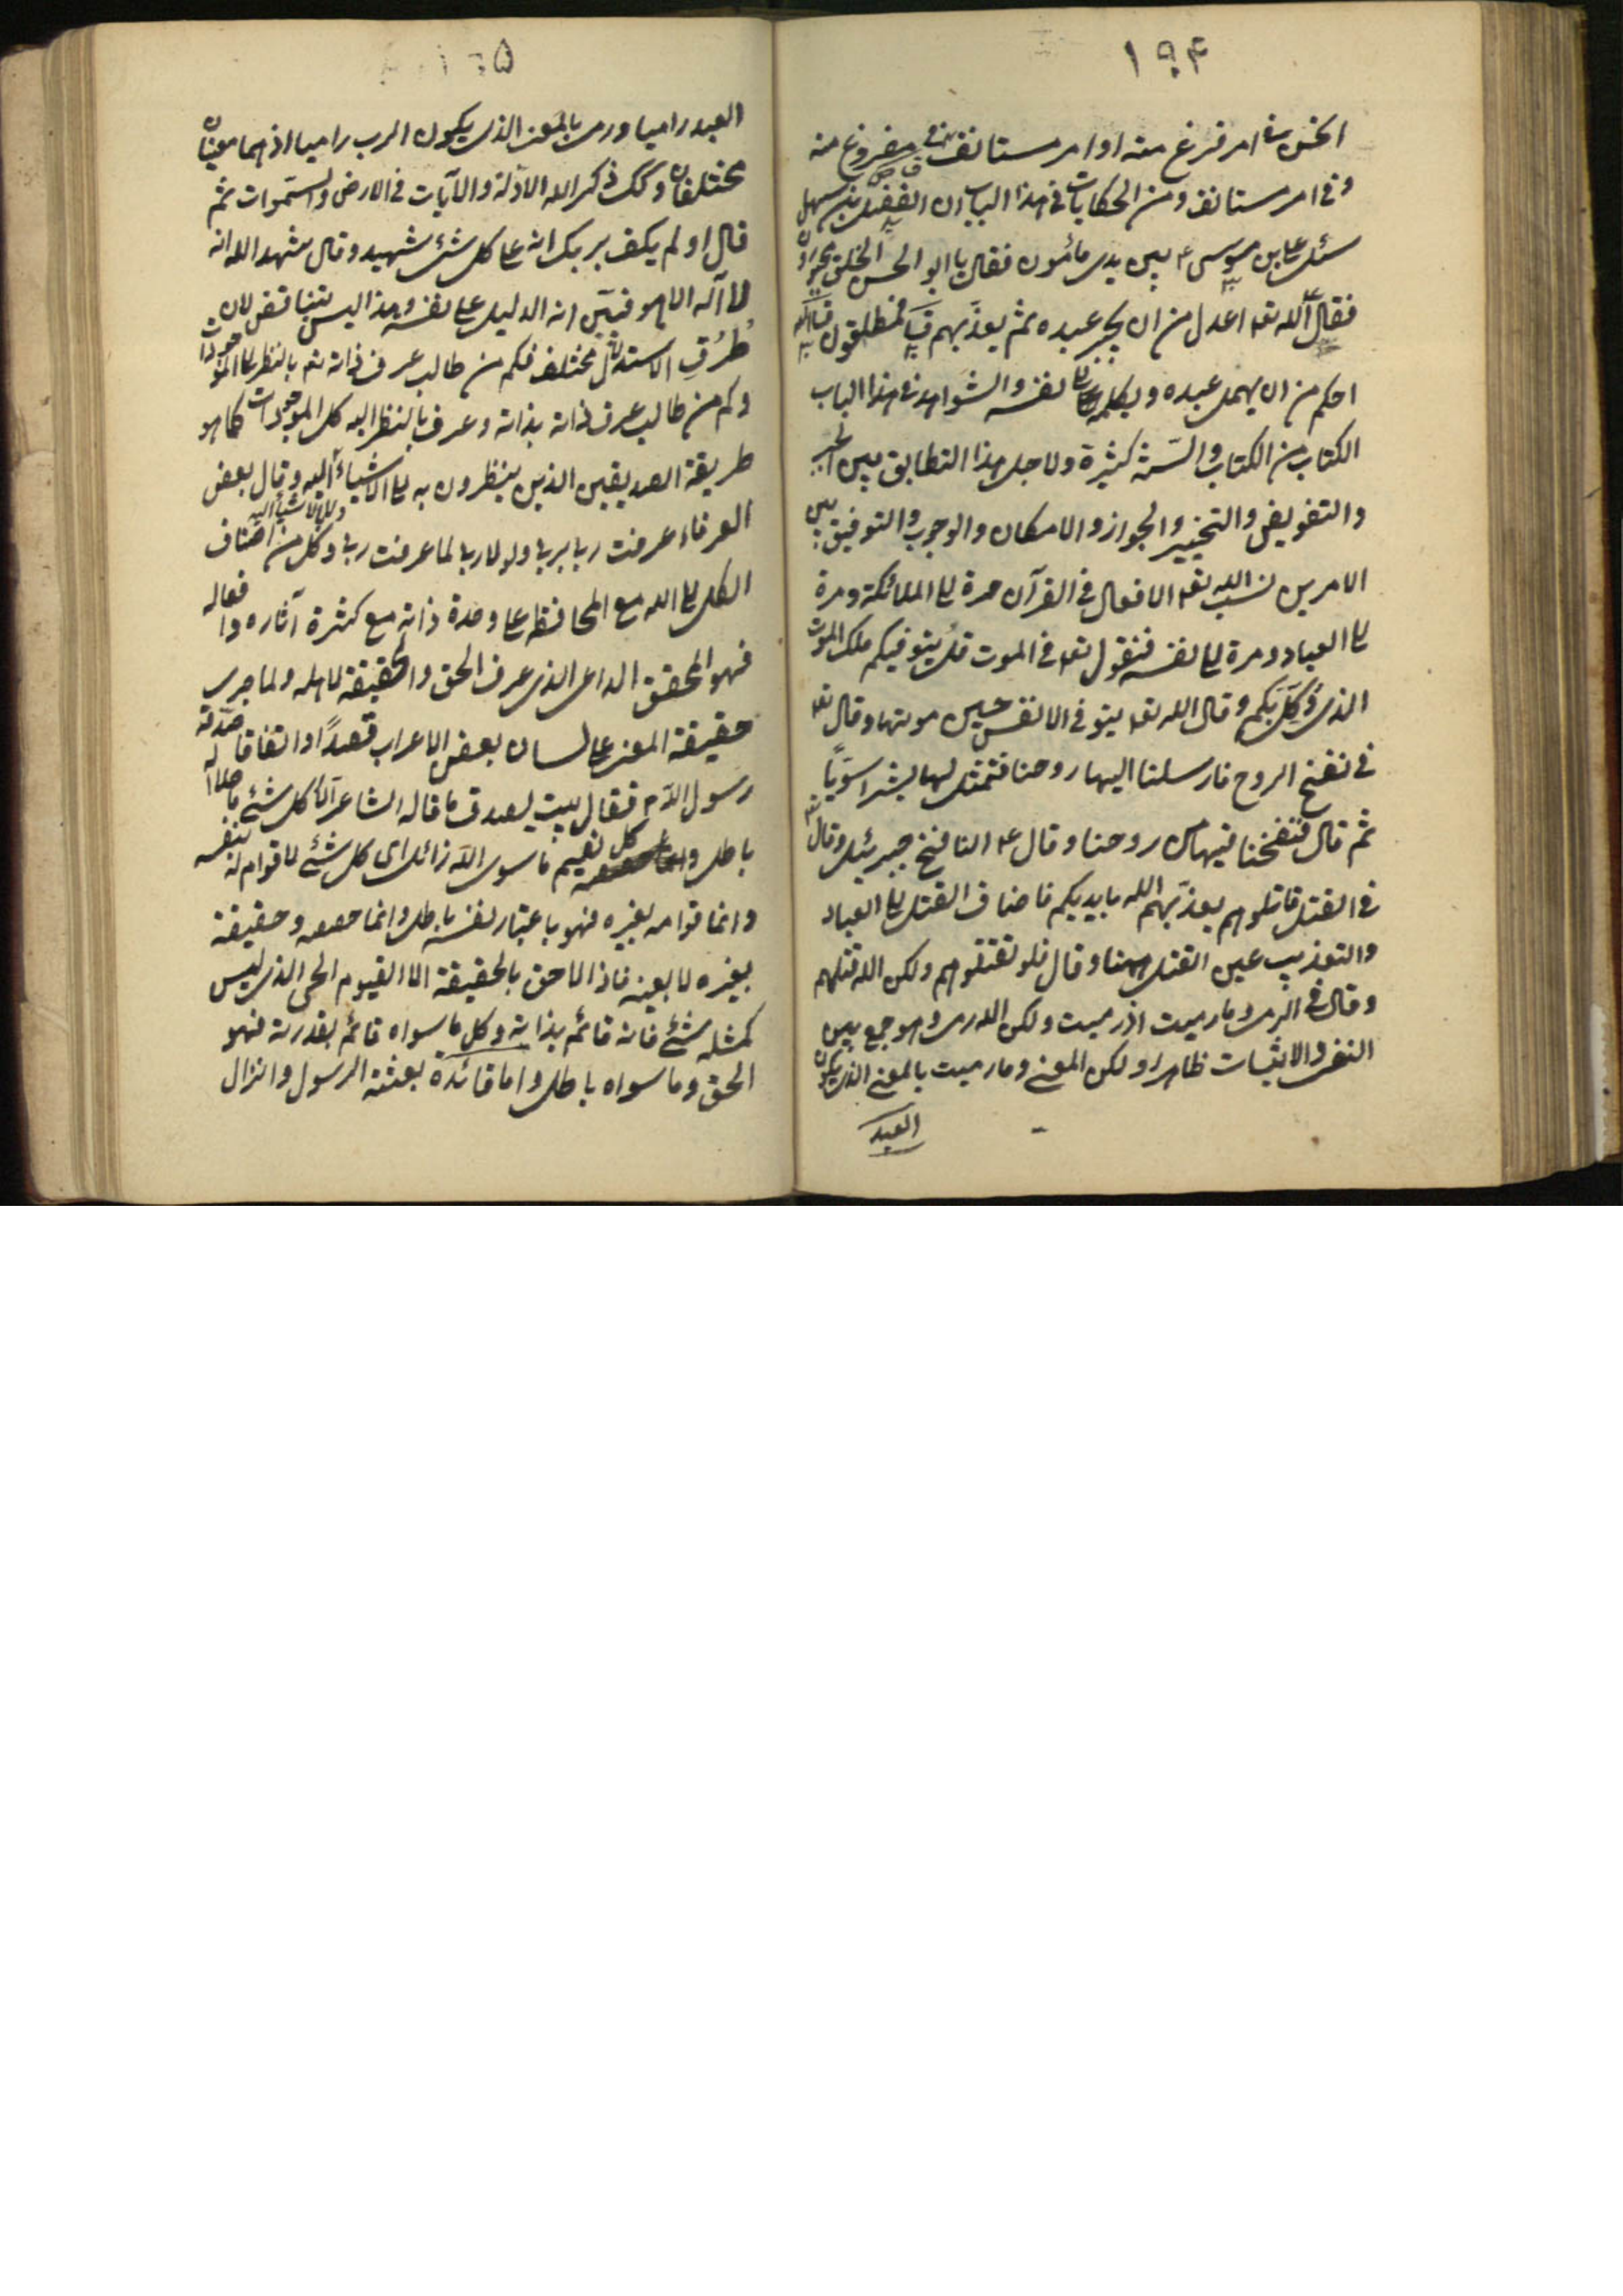 ١٩۴
انحن فى امر فرغ منه او امر مستانف فى مفروغ منه
و فى امر مستانف و من الحكايات فى هذا الباب ان الفضل بن سهل
سئل على بن موسى ع بين يدى مأمون فقال يا ابو الحسن الخلق مجبورون
فقال الله تعـ اعدل من ان يجبر عبده ثم يعذبهم قيل فمطلقون قال الله
احكم من ان يهمل عبده و يكله الى نفسه و الشواهد فى هذا الباب
الكتاب من الكتاب و السنة كثيرة و لاجل هذا التطابق بين الجبر
و التفويض و التخيير و الجواز و الامكان و الوجوب و التوفيق بين
الامرين نسب الله تعـ الافعال فى القرآن مرة الى الملائكة و مرة
الى العباد و مرة الى نفسه فنقول تعـ فى الموت قل يتوفيكم ملك الموت
الذى وُكِّلَ بكم و قال الله تعـ يتوفى الانفس حين موتها و قال تعـ
فى نفخ الروح فارسلنا اليها روحنا فتمثل لها بشرا سويّاً
ثم قال فنفخنا فيها من روحنا و قال ع النافخ جبرئيل و قال تعـ
فى القتل قاتلوهم يعذّبهم الله بايديكم فاضاف القتل الى العباد
و التعذيب عين القتل ههنا و قال فلم تقتلوهم ولكن الله قتلهم
و قال فى الرمى و ما رميت اذ رميت ولكن الله رمى و هو جمع بين
النفى و الاثبات ظاهرا ولكن المعنى و ما رميت بالمعنى الذى يكون
العبد
١٩۵
العبد راميا و رمى بالمعنى الذى يكون الرب راميا اذ هما معنيان
مختلفان و كك ذكر الله الادلة و الآيات فى الارض و السّموات ثم
قال او لم يكف بربك انه على كل شئ شهيد و قال شهد الله انه
لا آله الا هو فتبيّن انه الدليل على نفسه و هذا ليس بتناقض لان
طُرُق الاستدلال مختلف فكم من طالب عرف ذاته تعـ بالنظر الى الموجودات
و كم من طالب عرف ذاته بذاته و عرف بالنظر اليه كل الموجودات كما هو
طريقة الصديقين الذين ينظرون به الى الاشياء لا بالاشياء اليه و قال بعض
العرفاء عرفت ربى بربى و لو لا ربى لما عرفت ربى و كل من اضاف
الكل الى الله مع المحافظة على وحدة ذاته مع كثرة آثاره و افعاله
فهو المحقق الداعى الذى عرف الحق و الحقيقة لاهله و لما جرى
حقيقة المعنى على لسان بعض الاعراب قصداً او اتفاقا صدقه
رسول الله ص فقال بيت يصدق ما قاله الشاعر الا كل شئ ما خلا الله
باطل و كل نعيم ما سوى الله زائل اى كل شئ لا قوام له بنفسه
و انما قوامه بغيره فهو باعتبار نفسه باطل و انما حقيقته و حقيقة
بغيره لا بعينه فاذا لا حق بالحقيقة الا القيوم الحى الذى ليس
كمثله شئ فانه قائم بذاته و كل ما سواه قائم بقدرته فهو
الحق و ما سواه باطل و اما فائدة بعثة الرسول و انزال